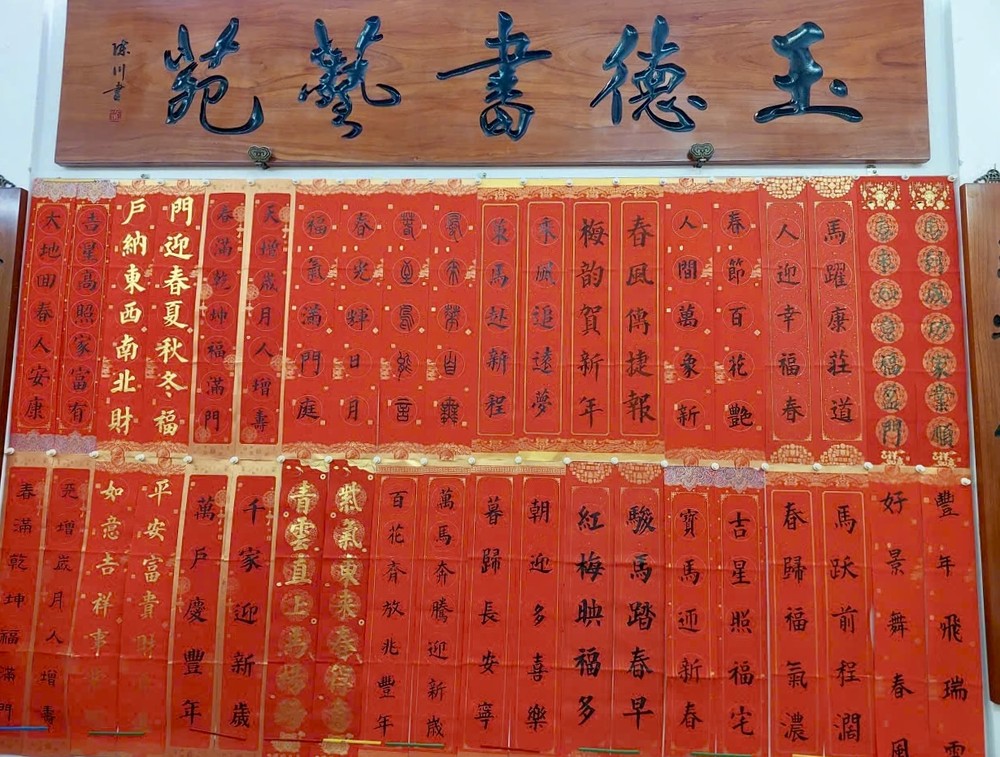 玉德書藝苑
川書
到成功家業順
來如意福盈門
馬躍康莊道
人迎幸福春
春節百花艷
人間萬象新
春風傳捷報
梅韵賀新年
乘風追遠夢
策馬赴新程
春光輝日月
福氣滿門庭
天增歲月人增壽
春滿乾坤福滿門
門迎春夏秋冬福
戶納東西南北財
吉星高照家富有
大地回春人安康
豐年飛瑞雪
好景舞春風
馬跃前程濶
春歸福氣濃
吉星照福宅
寶馬迎新春
駿馬踏春早
紅梅映福多
朝迎多喜樂
暮歸長安寧
萬馬奔騰迎新歲
百花齊放兆豐年
紫氣東來春
青雲直上馬
千家迎新歲
萬戶慶豐年
平安富貴財
如意吉祥事
天增歲月人增壽
春滿乾坤福滿門